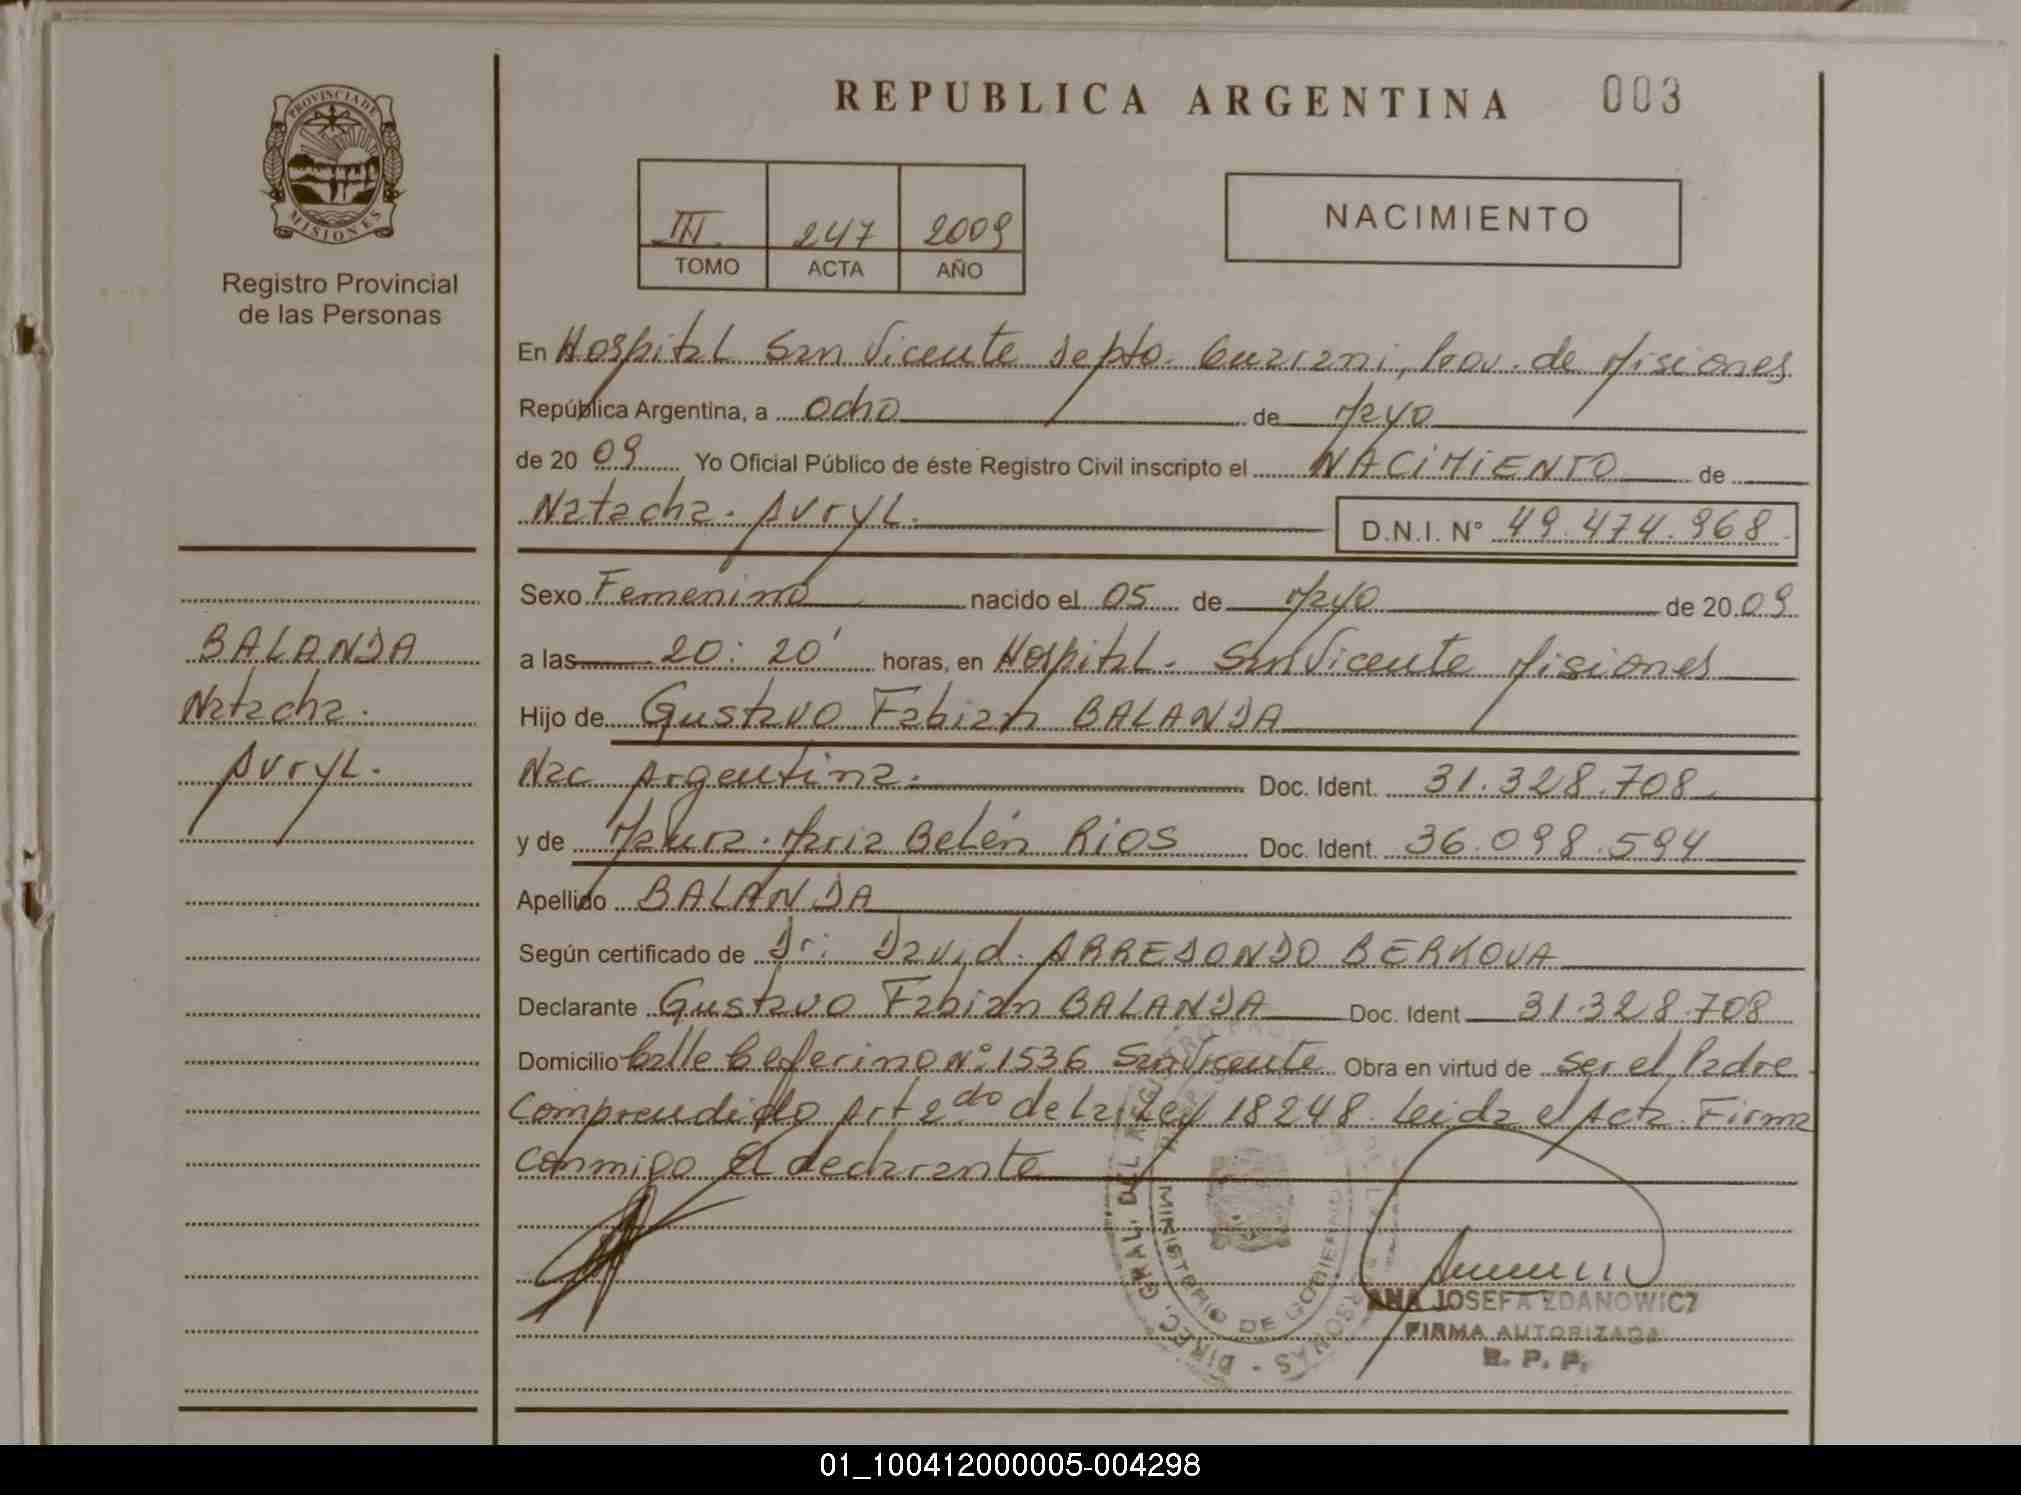 REPUBLICA ARGENTINA 003
PROVINCIA DE
MISIONES
Registro Provincial
de las Personas
III 247 2009
TOMO ACTA AÑO
NACIMIENTO
En Hospital San Vicente Depto. Guarani, Prov. de Misiones
República Argentina, a ocho de Mayo
de 2009 Yo Oficial Público de éste Registro Civil inscripto el NACIMIENTO de
Natacha. Avryl.
D.N.I. N° 49.474.968
Sexo Femenino nacido el 05 de Mayo de 2009
a las 20:20' horas, en Hospital. San Vicente Misiones
Hijo de Gustavo Fabian BALANDA
Nac Argentina. Doc. Ident. 31.328.708
y de Maria Belén RIOS Doc. Ident. 36.098.594
Apellido BALANDA
Según certificado de Dr: David. ARREDONDO BERKOVA
Declarante Gustavo Fabian BALANDA Doc. Ident 31.328.708
Domicilio Calle Ceferino N° 1536 San Vicente Obra en virtud de ser el Padre
Comprendido Art 2do de la Ley 18248. Leida el Acta. Firma
conmigo El declarante
BALANDA
Natacha.
Avryl.
DIREC. GRAL. DEL REGISTRO PERSONAS
MINISTERIO DE GOBIERNO
ANA JOSEFA ZDANOWICZ
FIRMA AUTORIZADA
R. P. P.
01_100412000005-004298